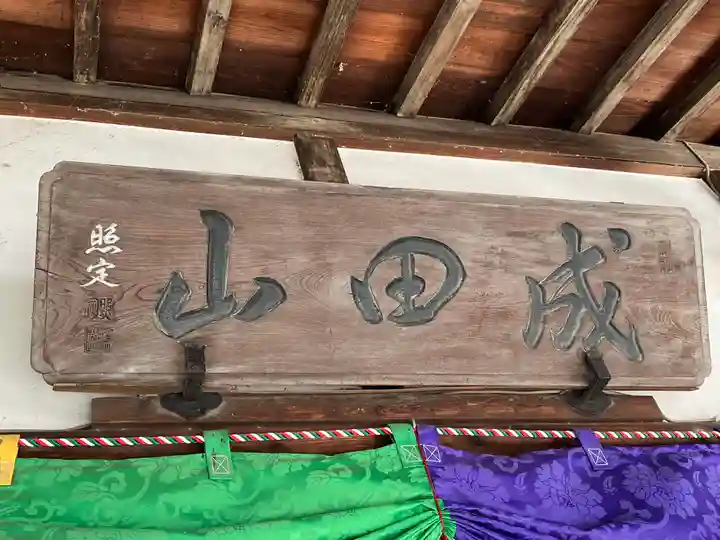 成田山
照定